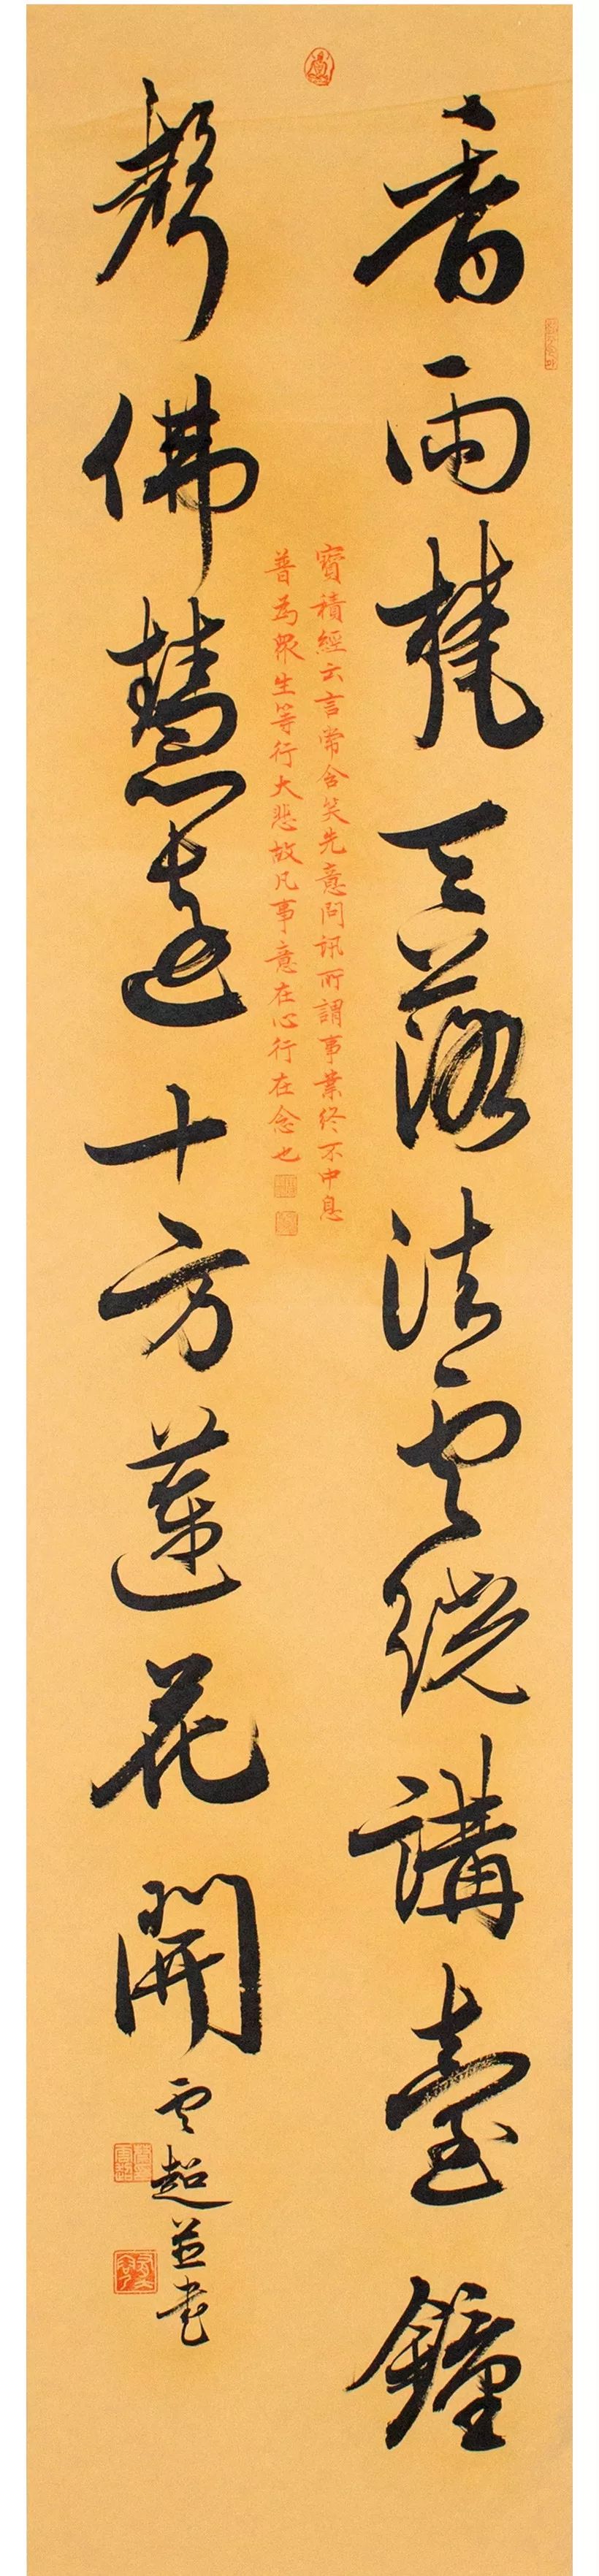 香雨梵天落法雲繞講臺鐘
聲佛慧遠十方蓮花開
寶積經云言常含笑先意問訊所謂事業終不中息
普為眾生等行大悲故凡事意在心行在念也
雲超並書